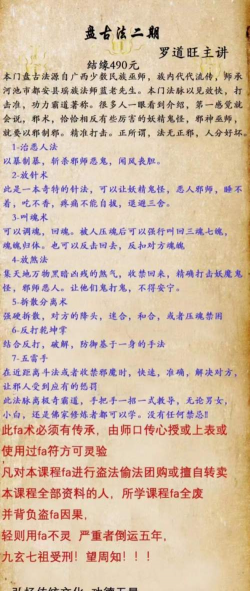 盘古法二期
罗道旺主讲
结缘490元
本门盘古法源自广西少数民族巫师,族内代代流传,师承
河池市都安县瑶族法师蓝老先生。本门法脉以见效快,打
击准,功力霸道著称。很多人一眼看到介绍,第一感觉就
会说,邪术,恰恰相反有些厉害的妖精鬼怪,邪神巫师,
就要以邪制邪。精准打击。正所谓,法无正邪,人分好坏。
1-治恶人法
以暴制暴,斩杀邪师恶鬼,闻风丧胆。
2-放针术
此是一本奇特的针法,可以让妖精鬼怪,恶人邪师,睡不
着,吃不香,疼痛不能自拔,退避三舍。
3-叫魂术
可以调魂,回魂。被人压魂后可以强行叫回三魂七魄,
魂魄归体。也可以反击回去,反扣对方魂魄
4-放煞法
集天地万物黑暗凶残的煞气,收禁回来,精确打击妖魔鬼
怪,邪师恶人。让他们鬼打鬼,不得安宁。
5-拆散分离术
强硬拆散,对方的降头,迷合,和合,或者压魂禁闭
6-反打乾坤掌
结合反打,破解,防御基于一身的手法
7-五雷手
在近距离斗法或者收禁邪魔时,快速,准确,解决对方,
让邪人受到应有的惩罚
此法脉离极奇霸道,手把手一招一式教导,无论男女,
小白,还是佛家修炼者都可以学。没有任何禁忌!!
此fa术必须有传承,由师口传心授或上表或
使用过fa符方可灵验
凡对本课程fa进行盗法偷法团购或擅自转卖
本课程全部资料的人,所学课程fa全废
并背负盗fa因果,
轻则用fa不灵 严重者倒运五年,
九玄七祖受刑!望周知!!!